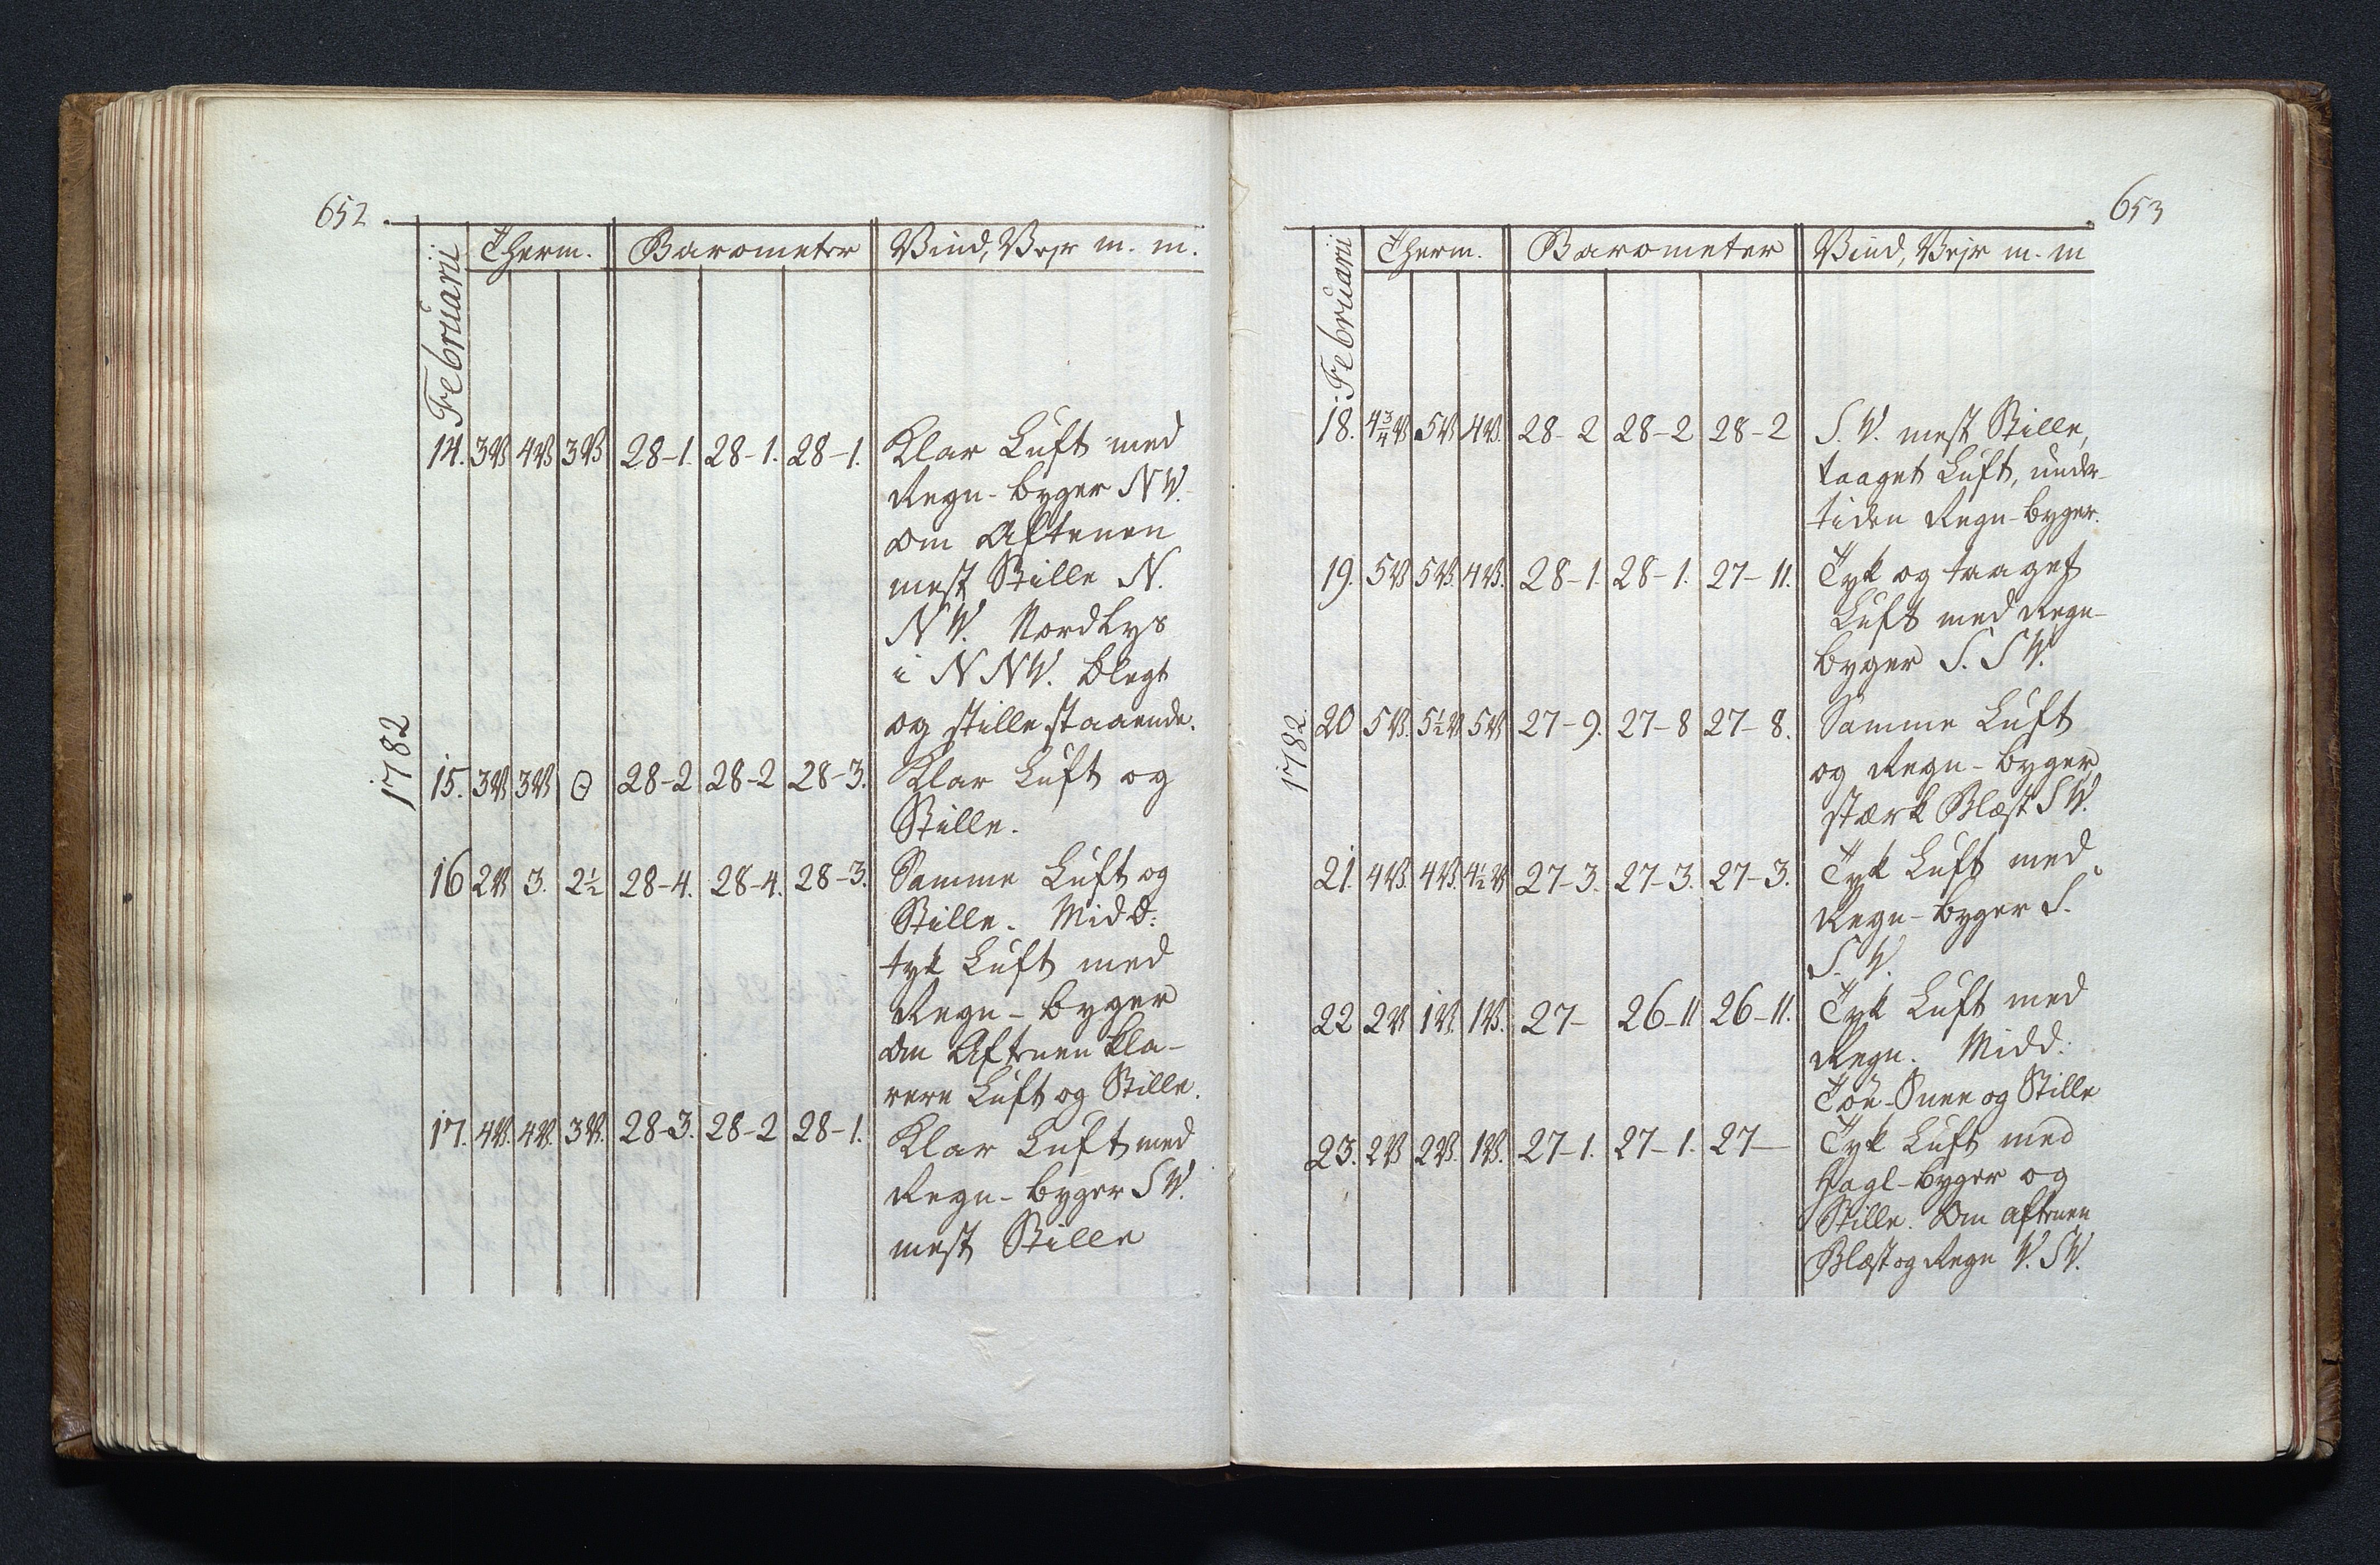 652.
Februarii Therm. Barometer Vind, Vejr m. m.
1782
14. 3W 4W 3W 28-1. 28-1. 28-1. Klar Luft med
Regn-byger NW.
om Aftenen
mest Stille N.
NW. Nordlys
i NNW. blegt
og stille staaende.
15. 3W 3W 0 28-2 28-2 28-3. Klar Luft og
Stille.
16 2W 3. 2½ 28-4. 28-4. 28-3. Samme Luft og
Stille. Midd:
tyk Luft med
Regn-byger
om Aftenen kla-
rere Luft og Stille.
17. 4W. 4W. 3W. 28-3. 28-2 28-1. Klar Luft med
Regn-byger SW.
mest Stille
653
Februarii Therm. Barometer Vind, Vejr m. m
1782.
18. 4¾W 5W 4W. 28-2 28-2 28-2 S.W. mest Stille,
taaget Luft, under-
tiden Regn-byger.
19. 5W 5W. 4W. 28-1. 28-1. 27-11. Tyk og taaget
Luft med Regn-
byger S.SW.
20 5W. 5½W 5W 27-9. 27-8 27-8. Samme Luft
og Regn-byger
stærk Blæst SW.
21. 4W. 4W. 4½W 27-3. 27-3. 27-3. Tyk Luft med
Regn-byger S.
S.W.
22 2W 1W. 1W. 27- 26-11 26-11. Tyk Luft med
Regn. Midd:
Töe-Snee og Stille
23. 2W 2W. 1W. 27-1. 27-1. 27- Tyk Luft med
Hagl-byger og
Stille. Om aftenen
Blæst og Regn W.SW.